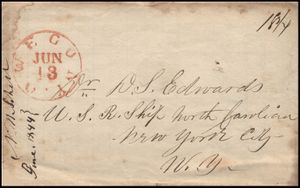 OSWEGO N.Y.
JUN
13
18¾
Mr D. S. Edwards
U. S. R. Ship North Carolina
New York City
N. Y.
June 1844